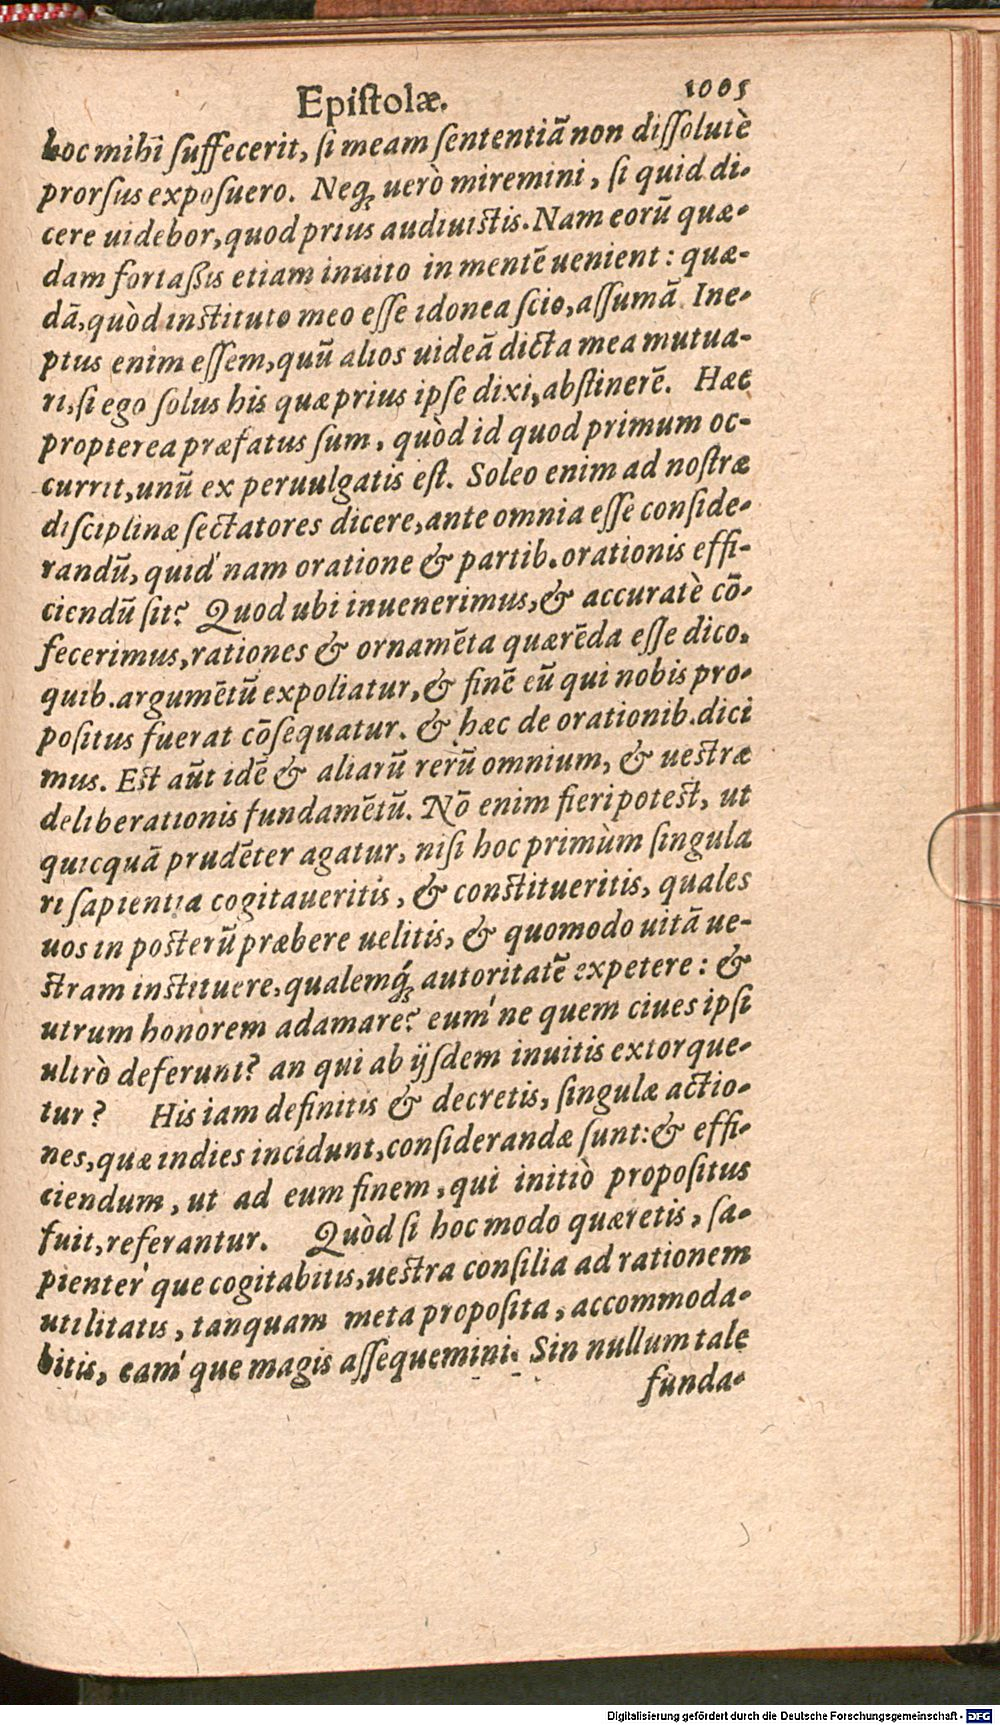 Epiſtolæ. 1005
hoc mihi ſuffecerit, ſi meam ſententiã non diſſolutè
prorſus expoſuero. Neq; uerò miremini, ſi quid di-
cere uidebor, quod prius audiuiſtis. Nam eorũ quæ-
dam fortaßis etiam inuito in mentẽ uenient: quæ-
dã, quòd inſtituto meo eſſe idonea ſcio, aſſumã Ine-
ptus enim eſſem, quũ alios uideã dicta mea mutua-
ri, ſi ego ſolus his quæ prius ipſe dixi, abſtinerẽ. Hæc
propterea præfatus ſum, quòd id quod primum oc-
currit, unũ ex peruulgatis eſt. Soleo enim ad noſtræ
diſciplinæ ſectatores dicere, ante omnia eſſe conſide-
randũ, quid'nam oratione & partib. orationis effi-
ciendũ ſit? Quod ubi inuenerimus, & accuratè cõ-
fecerimus, rationes & ornamẽta quærẽda eſſe dico,
quib. argumẽtũ expoliatur, & finẽ eũ qui nobis pro-
poſitus fuerat cõſequatur. & hæc de orationib. dici
mus. Eſt aũt idẽ & aliarũ rerũ omnium, & ueſtræ
deliberationis fundamẽtũ. Nõ enim fieri poteſt, ut
quicquã prudẽter agatur, niſi hoc primùm ſingula
ri ſapientia cogitaueritis, & conſtitueritis, quales
uos in poſterũ præbere uelitis, & quomodo uitã ue-
ſtram inſtituere, qualemq́; autoritatẽ expetere: &
utrum honorem adamare? eum'ne quem ciues ipſi
ultrò deferunt? an qui ab ijſdem inuitis extorque-
tur? His iam definitis & decretis, ſingulæ actio-
nes, quæ indies incidunt, conſiderandæ ſunt: & effi-
ciendum, ut ad eum finem, qui initiò propoſitus
fuit, referantur. Quòd ſi hoc modo quæretis, ſa-
pienter'que cogitabitis, ueſtra conſilia ad rationem
utilitatis, tanquam meta propoſita, accommoda-
bitis, eam'que magis aſſequemini. Sin nullum tale
funda-
Digitalisierung gefördert durch die Deutsche Forschungsgemeinschaft - DFG